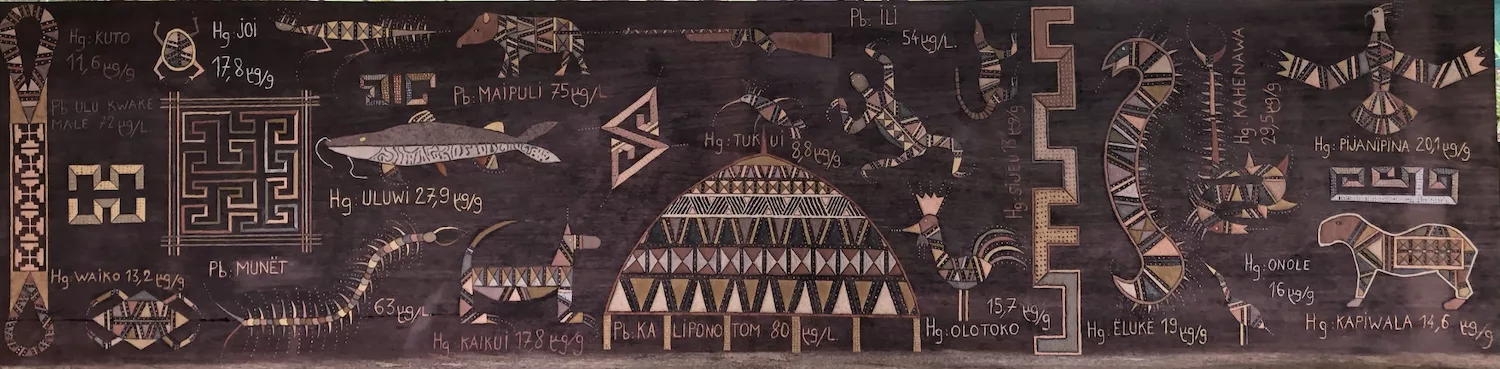 Hg: KUTO
11,6 µg/g
Hg: JOI
17,8 µg/g
Pb: ULU KWAKE
MALE 72 µg/L
Pb: MAIPULI 75 µg/L
Pb: ILI
54 µg/L.
Hg: TUKUI
8,8 µg/g
Hg: ULUWI 27,9 µg/g
Hg: SIWELU 18 µg/g
Hg: KAHENAWA
29,5 µg/g
Hg: PIJANIPINA 20,1 µg/g
Hg: WAIKO 13,2 µg/g
Pb: MUNËT
63 µg/L
Hg: KAIKUI 178 µg/g
Pb: KALIPONO TOM 80 µg/L.
Hg: OLOTOKO
15,7 µg/g
Hg: ËLUKE 19 µg/g
Hg: ONOLE
16 µg/g
Hg: KAPIWALA 14,6 µg/g